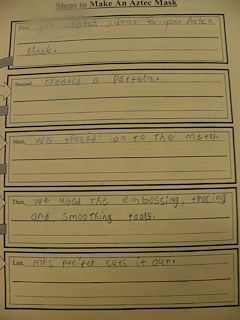 Steps to Make An Aztec Mask
First, ideas for your Aztec
Mask.
Second, created a pattern.
Next, we traced on to the metel.
Then, we used the embossing, tracing
and smoothing tools.
Last, mrs cuts it out.